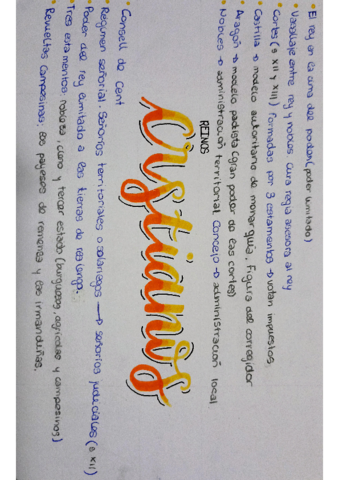 • El rey en la cima del poder (poder limitado)
• Vasallaje entre rey y nobles Curia regia asesora al rey
Cortes (s XII y XIII) formadas por 3 estamentos → votan impuestos
• Castilla → modelo autoritario de monarquía. Figura del corregidor
• Aragón → modelo pactista (gran poder de las cortes)
Nobles → administración territorial Concejo → administración local
REINOS
Cristianos
• Consell de Cent
• Régimen señorial. Señoríos territoriales o solariegos → señoríos judiciales (s XII)
• Poder del rey limitado a las tierras de realengo.
• Tres estamentos: nobleza, clero y tercer estado (burguesas, agrícolas y campesinos)
Revueltas campesinas: los payeses de remensa y los irmandiños.